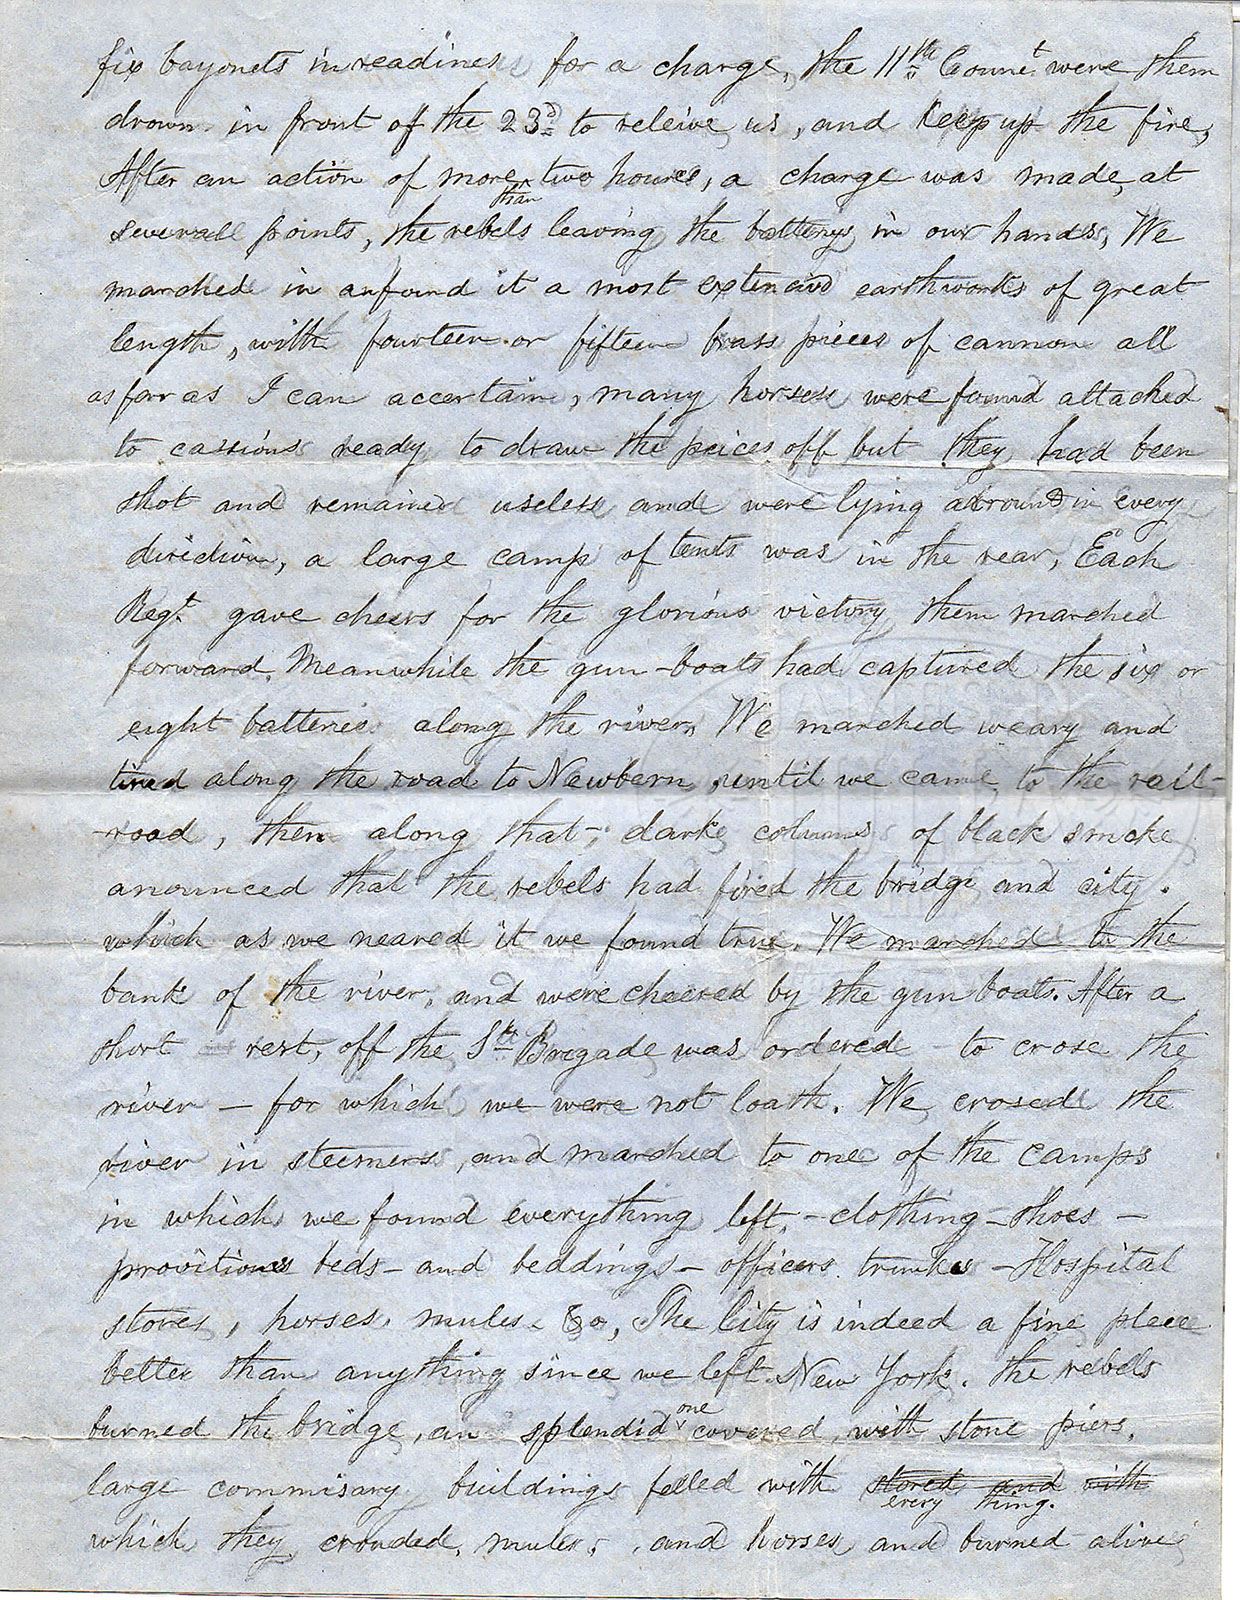 fix bayonets in readiness for a charge, the 11th Connet were them
drawn in front of the 23d to releive us, and keep up the fire,
After an action of more than two houres, a charge was made, at
severall points, the rebels leaving the batterys in our hands, We
marched in anfound it a most extencivd earthworks of great
length, with fourteen or fifteen brass pieces of cannon all
as far as I can accertain, many horses were found attached
to cassions ready to draw the peices off but they had been
shot and remained useless and were lying arround in every
direction, a large camp of tents was in the rear, Each
Regt. gave cheers for the glorious victory them marched
forward. Meanwhile the gun-boats had captured the six or
eight batteries along the river. We marched weary and
tired along the road to Newbern, until we came to the rail-
-road, then along that-; darke columns of black smoke
anounced that the rebels had fired the bridge and city.
which as we neared it we found true. We marched to the
bank of the river, and were cheered by the gun boats. After a
short rest, off the 1st Brigade was ordered to cross the
river - for which we were not loath. We crosed the
river in steemers, and marched to one of the camps
in which we found everything left, - clothing - shoes -
provitions beds - and beddings - officers trunkes - Hospital
stores, horses, mules. &c, The City is indeed a fine place
better than anything since we left New York. the rebels
burned the bridge, an splendid one covered, with stone piers.
large commisary buildings filled with stored and with every thing.
which they crouded, mules, and horses and burned alive